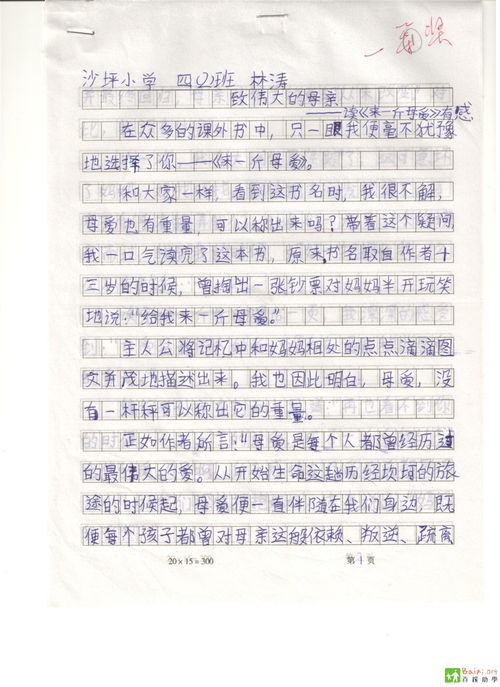 沙坪小学 四(2)班 林涛
致伟大的母亲
——读《来一斤母爱》有感
在众多的课外书中，只一眼我便毫不犹豫
地选择了你——《来一斤母爱》。
和大家一样，看到这书名时，我很不解，
母爱也有重量，可以称出来吗？带着这个疑问，
我一口气读完了这本书，原来书名取自作者十
三岁的时候，曾掏出一张钞票对妈妈半开玩笑
地说：“给我来一斤母爱。”
主人公将记忆中和妈妈相处的点点滴滴图
文并茂地描述出来。我也因此明白，母爱，没
有一杆秤可以称出它的重量。
正如作者所言：“母爱是每个人都曾经历过
的最伟大的爱。从开始生命这趟历经坎坷的旅
途的时候起，母爱便一直伴随在我们身边，既
便每个孩子都曾对母亲这般依赖、叛逆、疏离
20×15=300 第1页
Baixi.org
百蹊助學